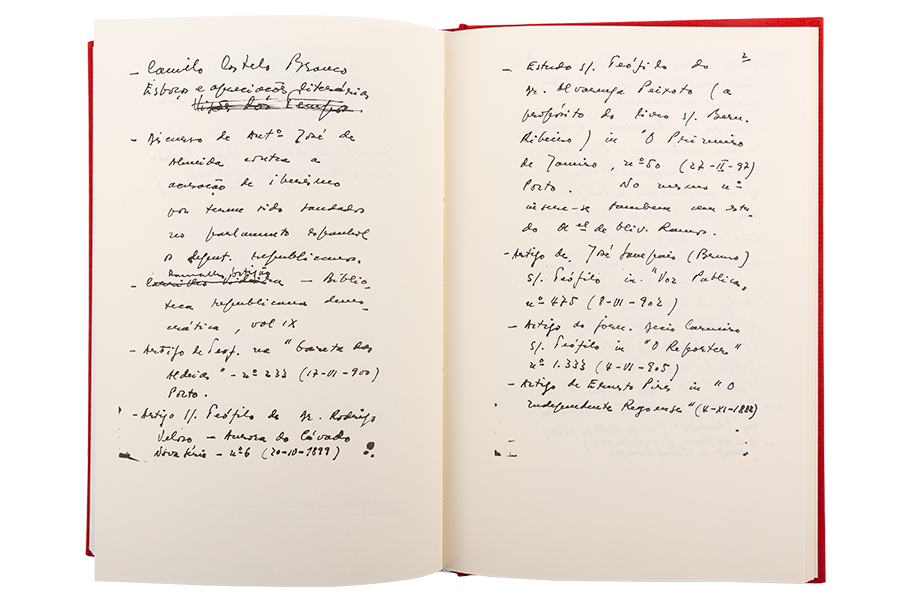 - Camilo Castelo Branco
Esboço e apreciações literárias
Visões dos Tempos
- Discurso de Antº José de
Almeida contra a
acusação de iberismo
por terem sido saudados
no parlamento espanhol
os deput. republicanos.
Ramalho Ortigão
- — Biblio-
teca republicana demo-
crática, vol IX
- Artigo de Teof. na "Gazeta das
Aldeias" - nº 233 (17-VI-900)
Porto.
- Artigo s/. Teófilo de Dr. Rodrigo
Veloso - Aurora do Cávado
Nova Série - nº 6 (20-10-1899)
2
- Estudo s/. Teófilo do
Dr. Alvarenga Peixoto (a
propósito do livro s/. Bern.
Ribeiro) in "O Primeiro
de Janeiro, nº 50 (27-II-97)
Porto. No mesmo nº
insere-se tambem um estu-
do de Oliv. Ramos.
- Artigo de José Sampaio (Bruno)
s/. Teófilo in "Voz Publica,
nº 475 (8-VI-902)
- Artigo do jorn. Carneiro
s/. Teófilo in "O Reporter"
nº 1.333 (4-VI-905)
- Artigo de Ernesto Pires in "O
Independente Regoense" (4-XI-1888)